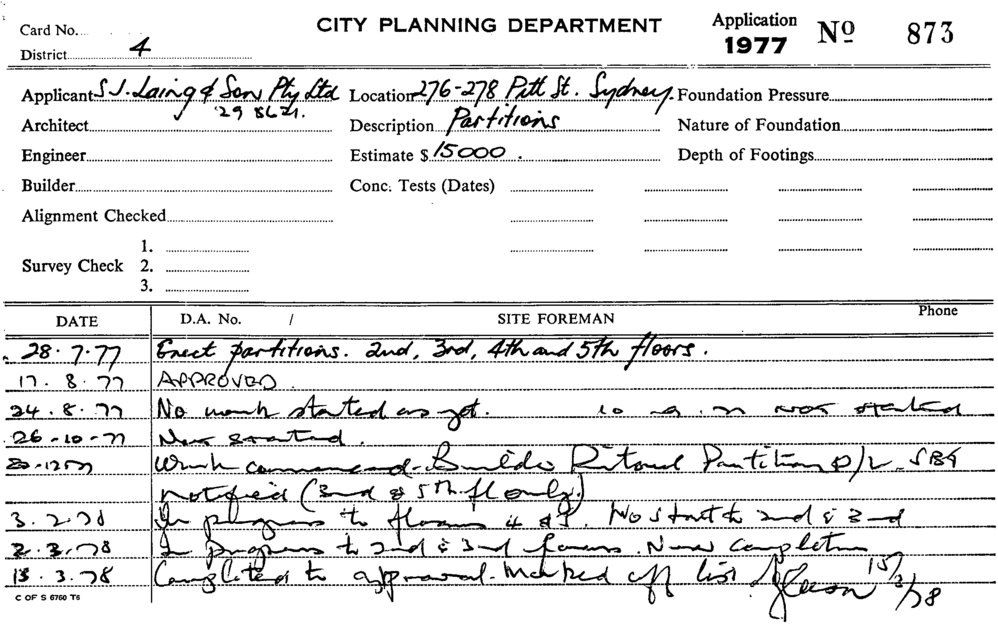 Card No.
CITY PLANNING DEPARTMENT
Application
1977 Nº 873
District 4
Applicant S J. Laing & Son Pty Ltd Location 276-278 Pitt St. Sydney. Foundation Pressure
29 8621.
Architect Description Partitions Nature of Foundation
Engineer Estimate $ 15000. Depth of Footings
Builder Conc. Tests (Dates)
Alignment Checked
1.
Survey Check 2.
3.
DATE D.A. No. / SITE FOREMAN Phone
28. 7. 77 Erect partitions. 2nd, 3rd, 4th and 5th floors.
17. 8. 77 APPROVED.
24. 8. 77 No work started as yet. not started
26-10-77 started.
Work commenced. Builder Partitions P/L
notified (3rd & 5th fl only.)
3. 2. 78 In progress to floors 4 & 5. No start to 2nd & 3rd
2. 3. 78 In progress to 2nd & 3rd floors. completion
15. 3. 78 Completed to approval. Marked off list 15/3/78
C OF S 6760 T6